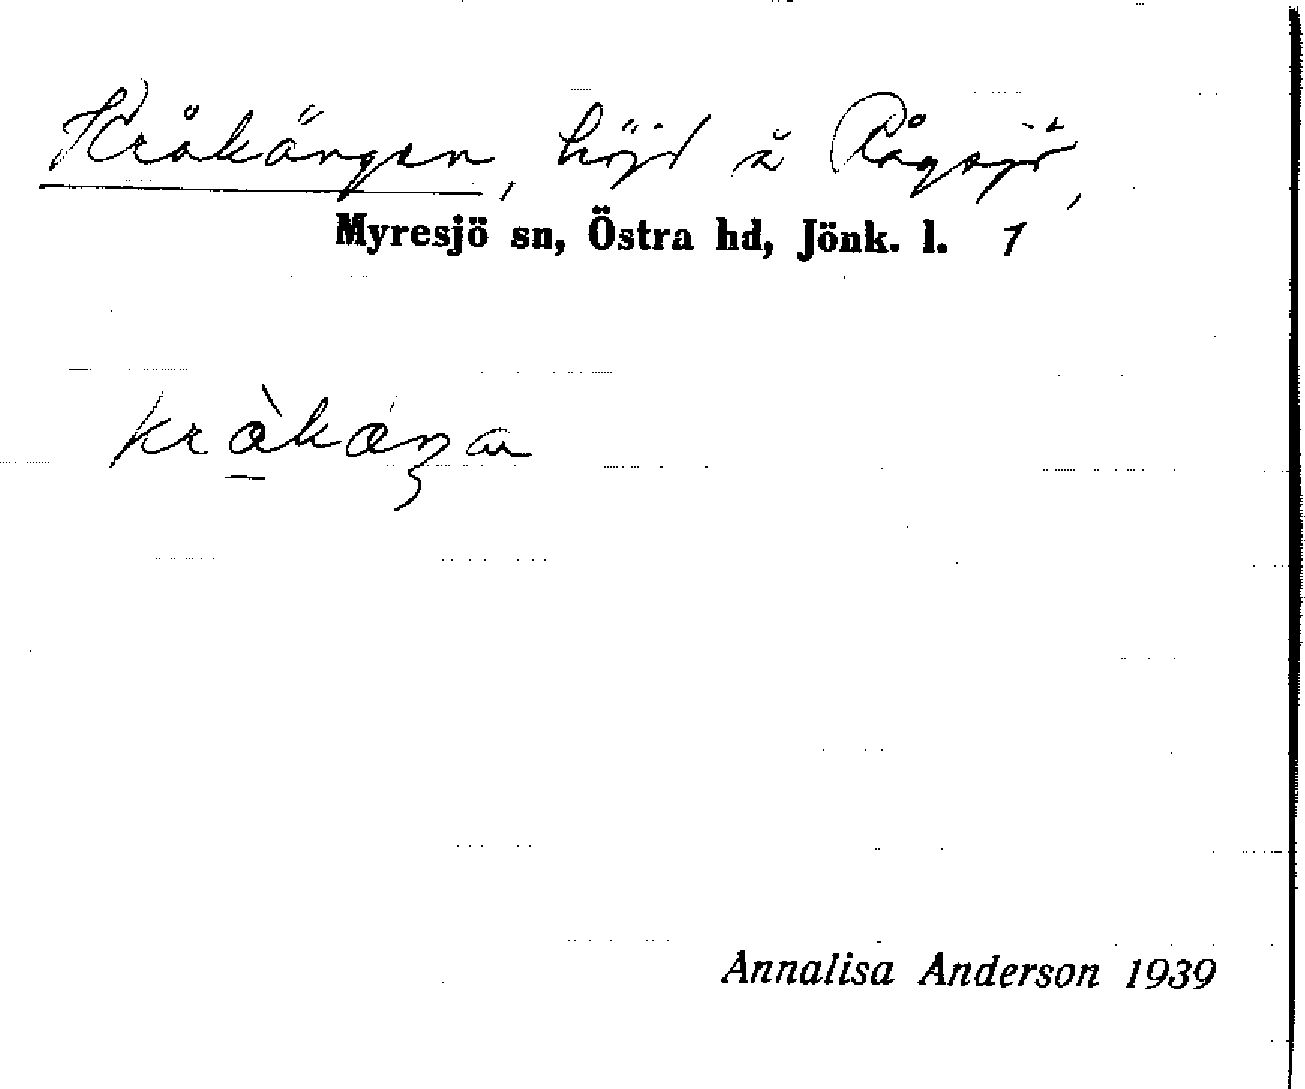 Kråkängen, höjd å Rågsjö,
Myresjö sn, Östra hd, Jönk. l. 1
Annalisa Anderson 1939